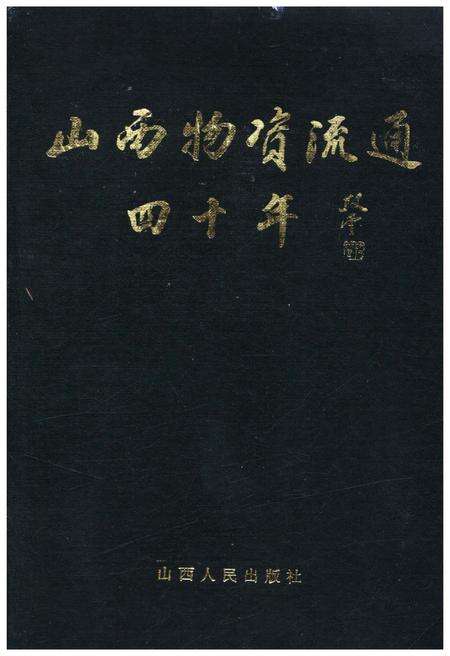 山西物资流通
四十年
段云
山西人民出版社